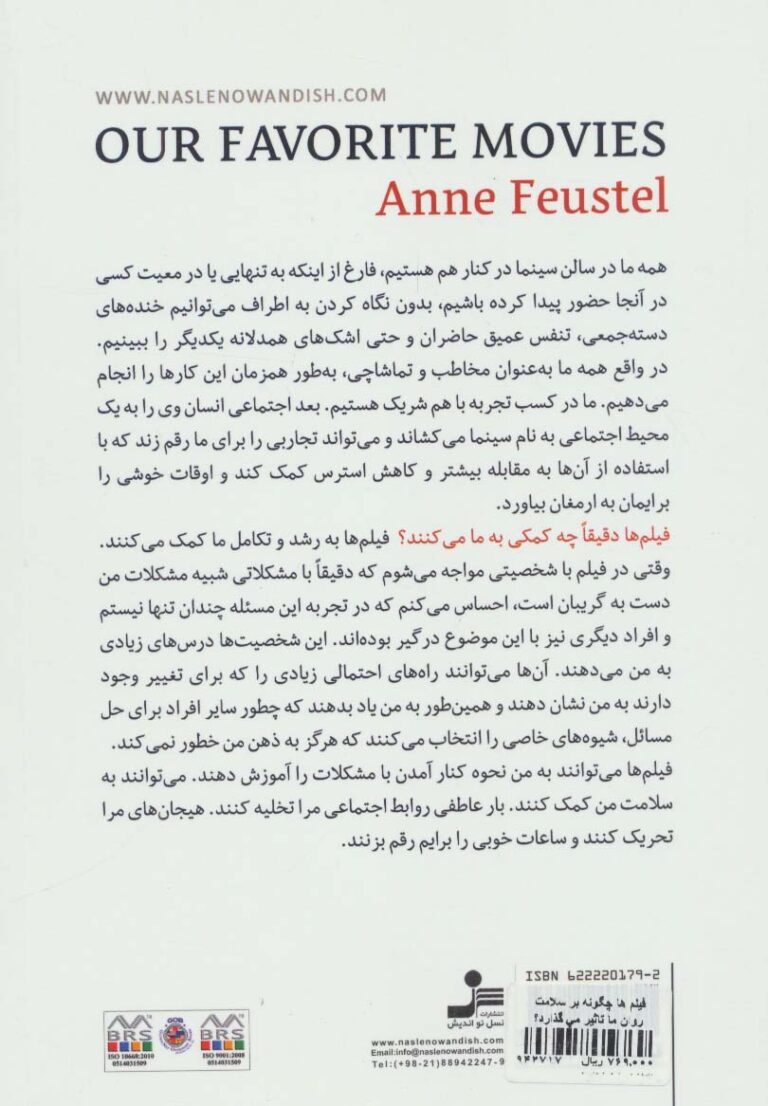 WWW.NASLENOWANDISH.COM
OUR FAVORITE MOVIES
Anne Feustel
همه ما در سالن سینما در کنار هم هستیم، فارغ از اینکه به تنهایی یا در معیت کسی
در آنجا حضور پیدا کرده باشیم، بدون نگاه کردن به اطراف می‌توانیم خنده‌های
دسته‌جمعی، تنفس عمیق حاضران و حتی اشک‌های همدلانه یکدیگر را ببینیم.
در واقع همه ما به‌عنوان مخاطب و تماشاچی، به‌طور همزمان این کارها را انجام
می‌دهیم. ما در کسب تجربه با هم شریک هستیم. بعد اجتماعی انسان وی را به یک
محیط اجتماعی به نام سینما می‌کشاند و می‌تواند تجاربی را برای ما رقم زند که با
استفاده از آن‌ها به مقابله بیشتر و کاهش استرس کمک کند و اوقات خوشی را
برایمان به ارمغان بیاورد.
فیلم‌ها دقیقاً چه کمکی به ما می‌کنند؟ فیلم‌ها به رشد و تکامل ما کمک می‌کنند.
وقتی در فیلم با شخصیتی مواجه می‌شوم که دقیقاً با مشکلاتی شبیه مشکلات من
دست به گریبان است، احساس می‌کنم که در تجربه این مسئله چندان تنها نیستم
و افراد دیگری نیز با این موضوع درگیر بوده‌اند. این شخصیت‌ها درس‌های زیادی
به من می‌دهند. آن‌ها می‌توانند راه‌های احتمالی زیادی را که برای تغییر وجود
دارند به من نشان دهند و همین‌طور به من یاد بدهند که چطور سایر افراد برای حل
مسائل، شیوه‌های خاصی را انتخاب می‌کنند که هرگز به ذهن من خطور نمی‌کند.
فیلم‌ها می‌توانند به من نحوه کنار آمدن با مشکلات را آموزش دهند. می‌توانند به
سلامت من کمک کنند. بار عاطفی روابط اجتماعی مرا تخلیه کنند. هیجان‌های مرا
تحریک کنند و ساعات خوبی را برایم رقم بزنند.
ISBN 622220179-2
فیلم ها چگونه بر سلامت
روان ما تاثیر می گذارد؟
942717 769,000 ریال
انتشارات
نسل نو اندیش
www.naslenowandish.com
Email:info@naslenowandish.com
Tel:(+98-21)88942247-9
BRS
ISO 10668:2010
0514031509
BRS
ISO 9001:2008
0514031509